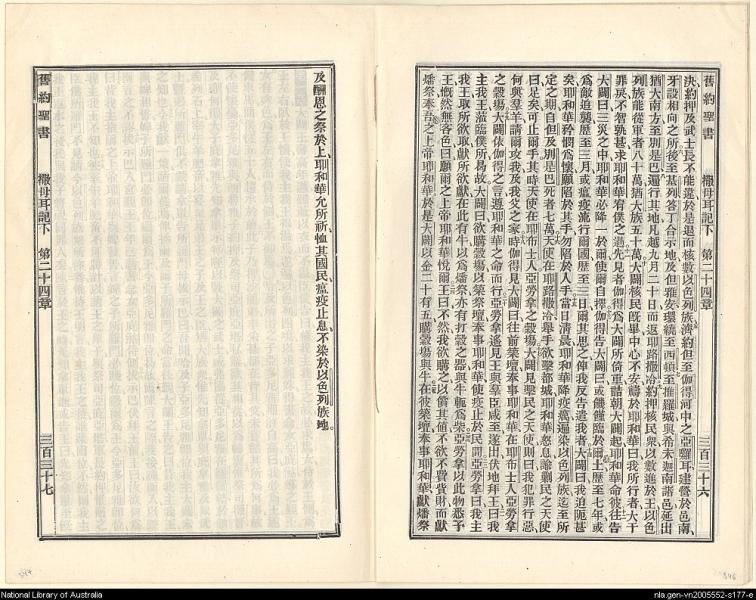 舊約聖書 撒母耳記下 第二十四章 三百三十六
決約押及武士長不能違於是退而核數以色列族濟約但至伽得河中之亞囉耳建營於邑南
牙設相向之所後至基列答丁合示地及但雅安環繞至西頓至推羅城與希未迦南諸邑延出
猶大南方至別是巴遍行其地凡越九月二十日而返耶路撒冷約押核民衆以數進於王以色
列族能從軍者八十萬猶大族五十萬大闢核民旣畢中心不安禱於耶和華曰我所行者大干
罪戾不智孰甚求耶和華宥僕之過先見者伽得爲大闢所倚重詰朝大闢起耶和華命彼往告
大闢曰三災之中耶和華必降一於爾使爾自擇伽得告大闢曰或饑饉臨於爾土歷至七年或
爲敵迫襲歷至三月或瘟疫流行爾國歷至三日爾其思之俾我反告遣我者大闢曰我迫阨甚
矣耶和華矜憫爲懷願陷於其手勿陷於人手當日清晨耶和華降疫癘遍染以色列族迄至所
定之期自但及別是巴死者七萬天使在耶路撒冷舉手欲擊都城耶和華怒息諭劉民之天使
曰足矣可止爾手其時天使在耶布士人亞勞拿之穀塲大闢見擊民之天使則曰我犯罪行惡
何與羣羊請爾攻我及我父之家時伽得見大闢曰往前築壇奉事耶和華在耶布士人亞勞拿
之穀塲大闢依伽得之言遵耶和華之命而行亞勞拿遙見王與羣臣咸至遂出伏地拜王曰我
主我王蒞臨僕所曷故大闢曰欲購穀塲以築祭壇奉事耶和華使疫止於民間亞勞拿曰我主
我王取所欲取獻所欲獻在此有牛以爲燔祭亦有打穀之器與牛軛爲柴亞勞拿以此物悉予
王慨然無吝色曰願爾之上帝耶和華悅爾王曰不然我欲購之以償其値不欲不費貲財而獻
燔祭奉吾之上帝耶和華於是大闢以金二十有五購穀塲與牛在彼築壇奉事耶和華獻燔祭
及酬恩之祭於上耶和華允所祈恤其國民瘟疫止息不染於以色列族地。
舊約聖書 撒母耳記下 第二十四章 三百三十七
347
346
National Library of Australia
nla.gen-vn2005552-s177-e